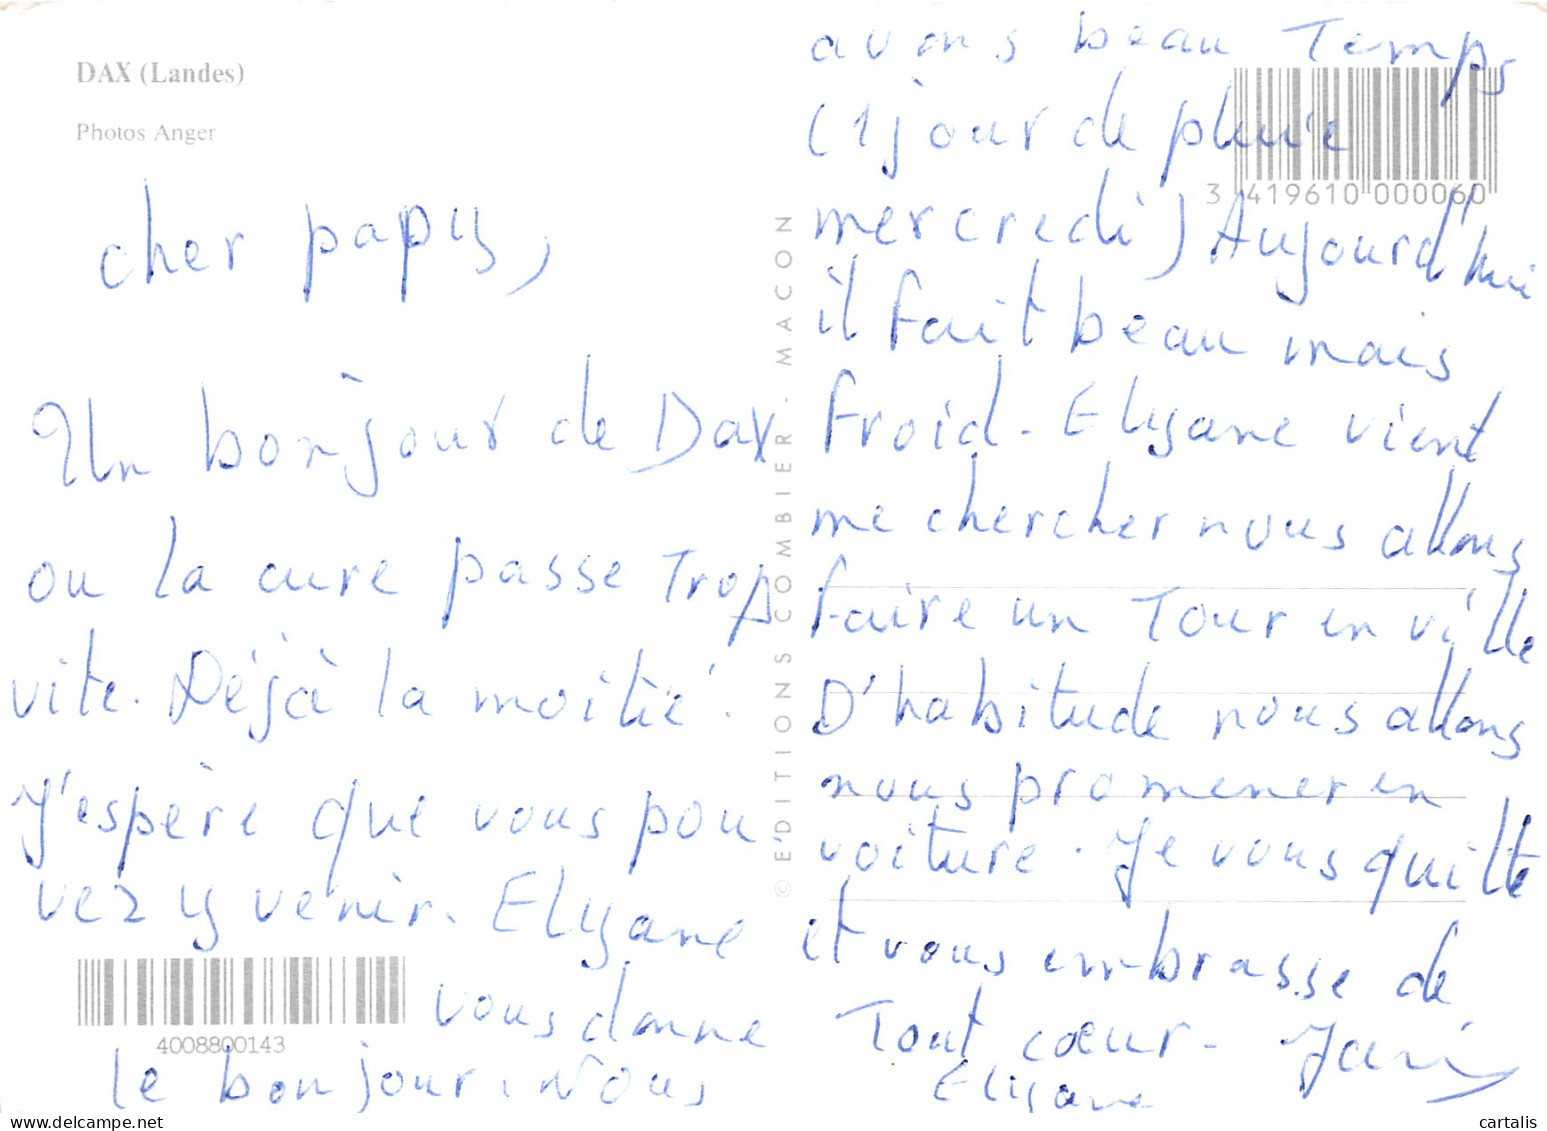 DAX (Landes)
Photos Anger
cher papy,
Un bonjour de Dax
ou la cure passe Trop
vite. Déjà la moitié.
J'espère que vous pou
vez y venir. Elyane
vous donne
le bonjour. Nous
4008800143
© EDITIONS COMBIER - MACON
avons beau Temps
(1 jour de pluie
mercredi) Aujourd'hui
il fait beau mais
froid. Elyane vient
me chercher nous allons
faire un Tour en ville
D'habitude nous allons
nous promener en
voiture. Je vous quitte
et vous embrasse de
Tout cœur.
Elyane
3 419610 000060
www.delcampe.net
cartalis